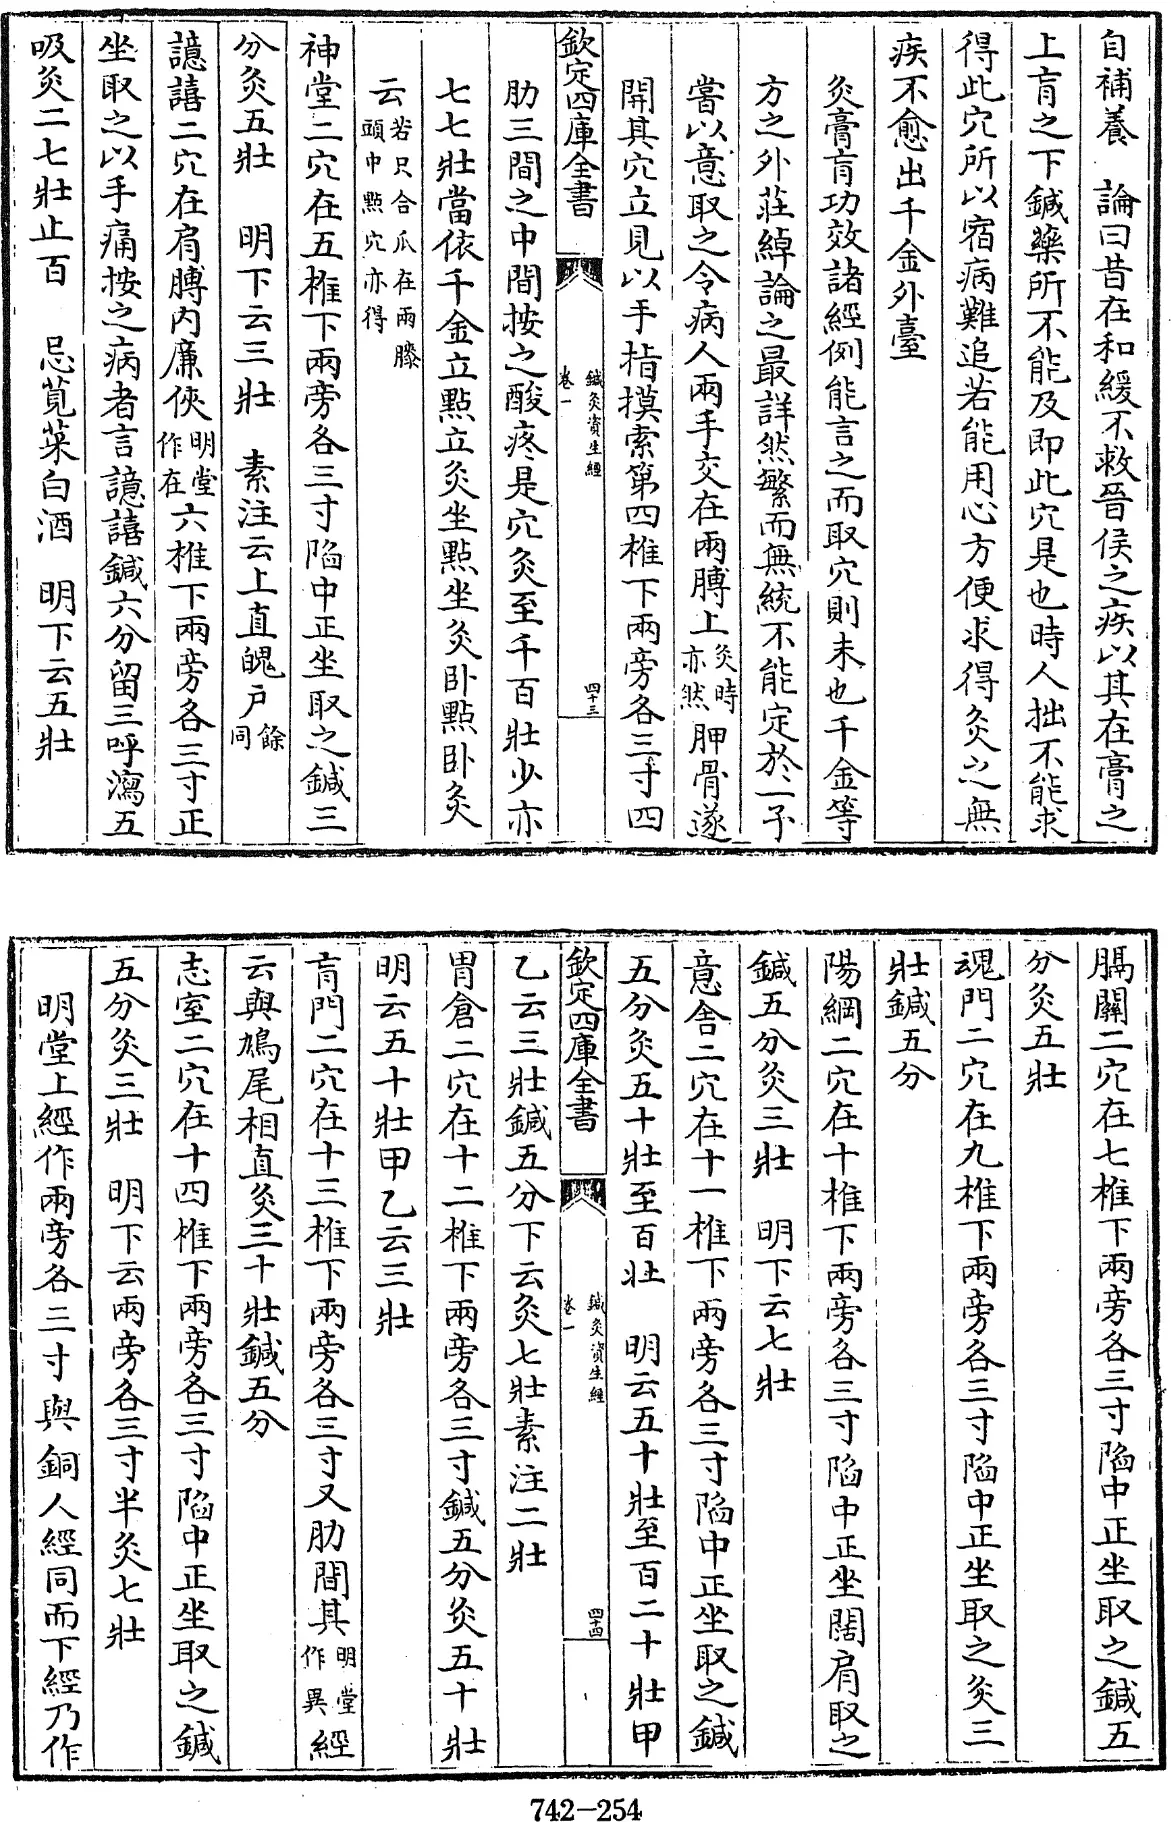 自補養　論曰昔在和緩不救晉侯之疾以其在膏之
上肓之下鍼藥所不能及即此穴是也時人拙不能求
得此穴所以宿病難追若能用心方便求得灸之無
疾不愈出千金外臺
灸膏肓功效諸經例能言之而取穴則未也千金等
方之外莊綽論之最詳然繁而無統不能定於一予
嘗以意取之令病人兩手交在兩膊上灸時亦然胛骨遂
開其穴立見以手指摸索第四椎下兩旁各三寸四
欽定四庫全書
鍼灸資生經
卷一
四十三
肋三間之中間按之酸疼是穴灸至千百壯少亦
七七壯當依千金立點立灸坐點坐灸卧點卧灸
云若只合爪在兩膝頭中點穴亦得
神堂二穴在五椎下兩旁各三寸陷中正坐取之鍼三
分灸五壯　明下云三壯　素注云上直魄戶餘同
譩譆二穴在肩膊內廉俠明堂作在六椎下兩旁各三寸正
坐取之以手痛按之病者言譩譆鍼六分留三呼瀉五
吸灸二七壯止百　忌莧菜白酒　明下云五壯
膈關二穴在七椎下兩旁各三寸陷中正坐取之鍼五
分灸五壯
魂門二穴在九椎下兩旁各三寸陷中正坐取之灸三
壯鍼五分
陽綱二穴在十椎下兩旁各三寸陷中正坐闊肩取之
鍼五分灸三壯　明下云七壯
意舍二穴在十一椎下兩旁各三寸陷中正坐取之鍼
五分灸五十壯至百壯　明云五十壯至百二十壯甲
欽定四庫全書
鍼灸資生經
卷一
四十四
乙云三壯鍼五分下云灸七壯素注二壯
胃倉二穴在十二椎下兩旁各三寸鍼五分灸五十壯
明云五十壯甲乙云三壯
肓門二穴在十三椎下兩旁各三寸又肋間其明堂作異經
云與鳩尾相直灸三十壯鍼五分
志室二穴在十四椎下兩旁各三寸陷中正坐取之鍼
五分灸三壯　明下云兩旁各三寸半灸七壯
明堂上經作兩旁各三寸與銅人經同而下經乃作
742-254